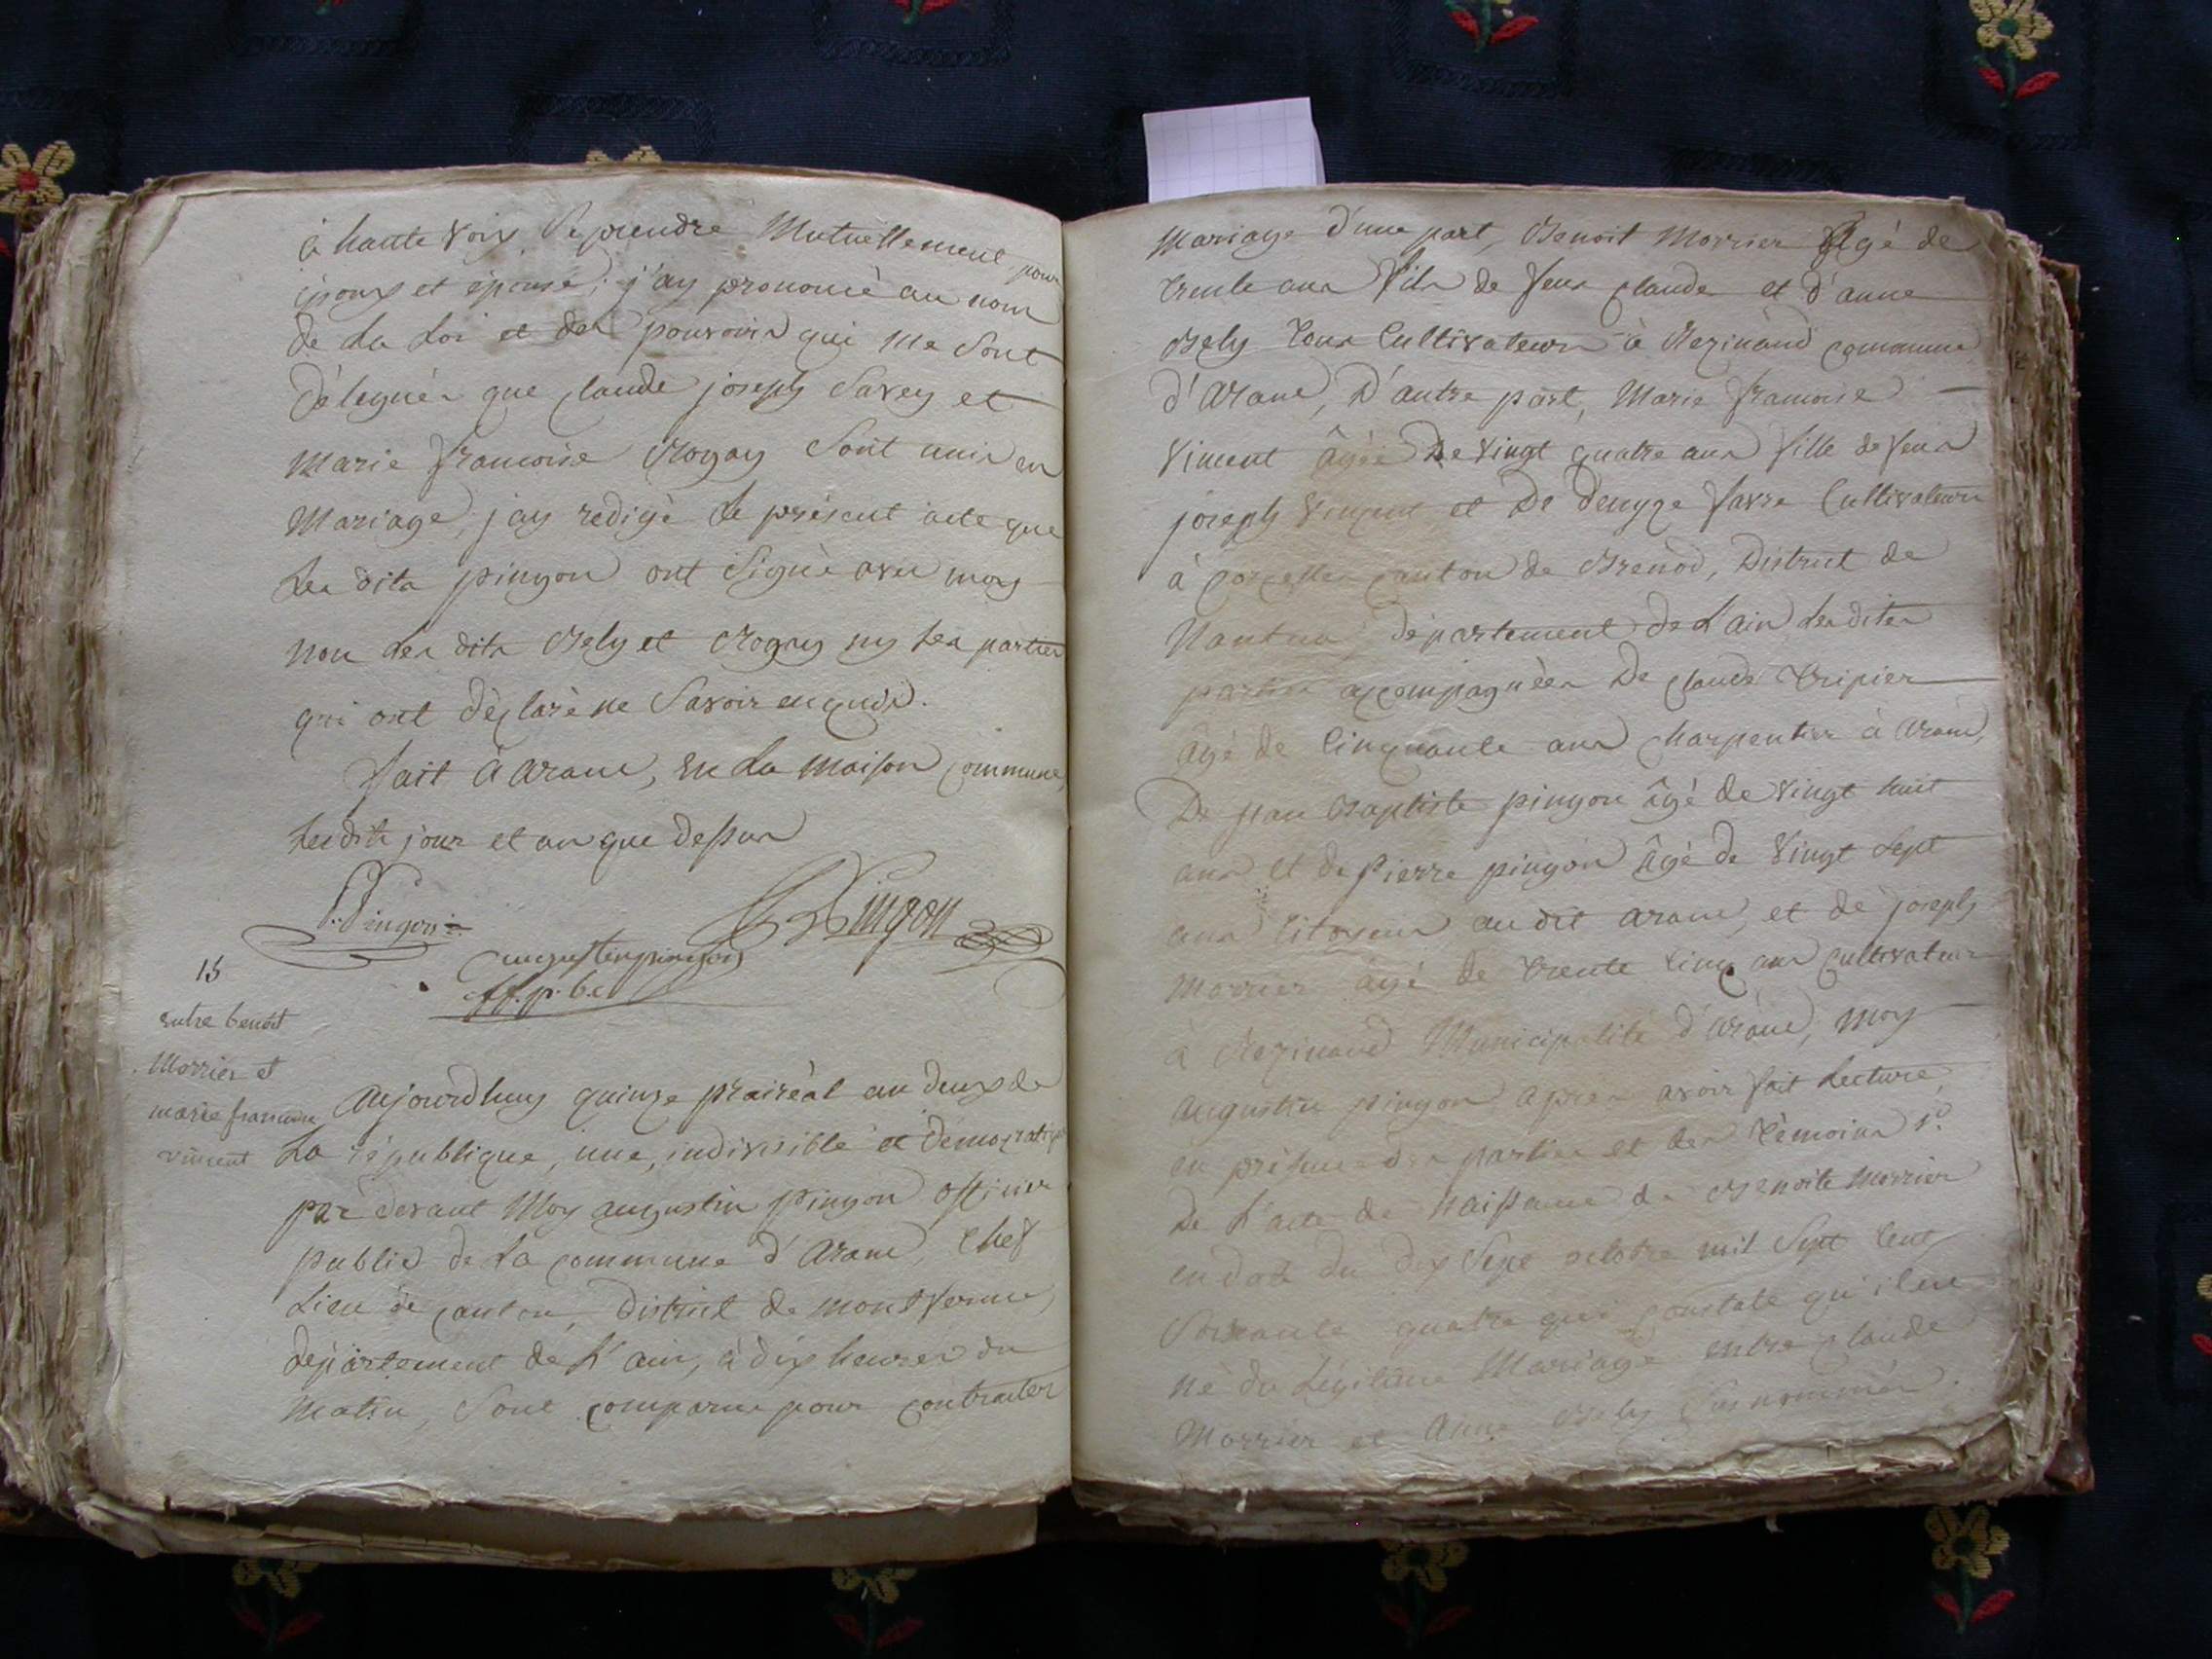 à haute voix se prendre Mutuellement pour
époux et épouse, j'ay prononcé au nom
de La Loi et des pouvoirs qui me Sont
Délégués que Claude joseph Savey et
Marie francoise Sont unis en
Mariage, j'ay redigé Le présent acte que
Les dits pinyon ont Signé avec moy
non Les dits Bely et ny Les parties
qui ont déclaré ne Savoir enquis.
fait à arane, en La Maison commune,
Lesdits jour et an que dessus
Pingon
Pingon
augustin pingon
off. p. b. c
15
entre benoit
Morrier et
marie francoise
vincent
Aujourdhuy quinze prairéal an deux de
La république, une, indivisible et democratique
par devant Moy augustin Pinyon officier
public de La commune d'arane, Chef
Lieu de canton, District de montferme,
département de L'ain, à dix heures du
Matin, Sont comparus pour contracter
Mariage d'une part, Benoit Morrier Agé de
trente ans fils de feux Claude et d'anne
Bely tous Cultivateurs à Rezinand commune
d'Arane, D'autre part, Marie francoise
Vincent âgée De Vingt quatre ans fille de feux
joseph Vincent et De Denyze favre Cultivateurs
à Corcelles canton de Brenod, District de
Nantua, département de L'ain Lesdites
parties accompagnées De Claude Tripier
âgé de Cinquante ans charpentier à arane,
De jean Baptiste pinyon âgé de Vingt huit
ans et de Pierre pinyon âgé de Vingt Sept
ans Citoyens audit arane, et de joseph
Morrier âgé de trente Cinq ans Cultivateur
à Rezinand Municipalité d'arane, Moy
augustin pinyon apres avoir fait Lecture,
en présence des parties et des témoins 1°.
De L'acte de Naissance de Benoite Morrier
en date du dix Sept octobre mil Sept Cent
Soixante quatre qui constate qu'il est
né du Légitime Mariage entre Claude
Morrier et Anne Bely Susnommés.